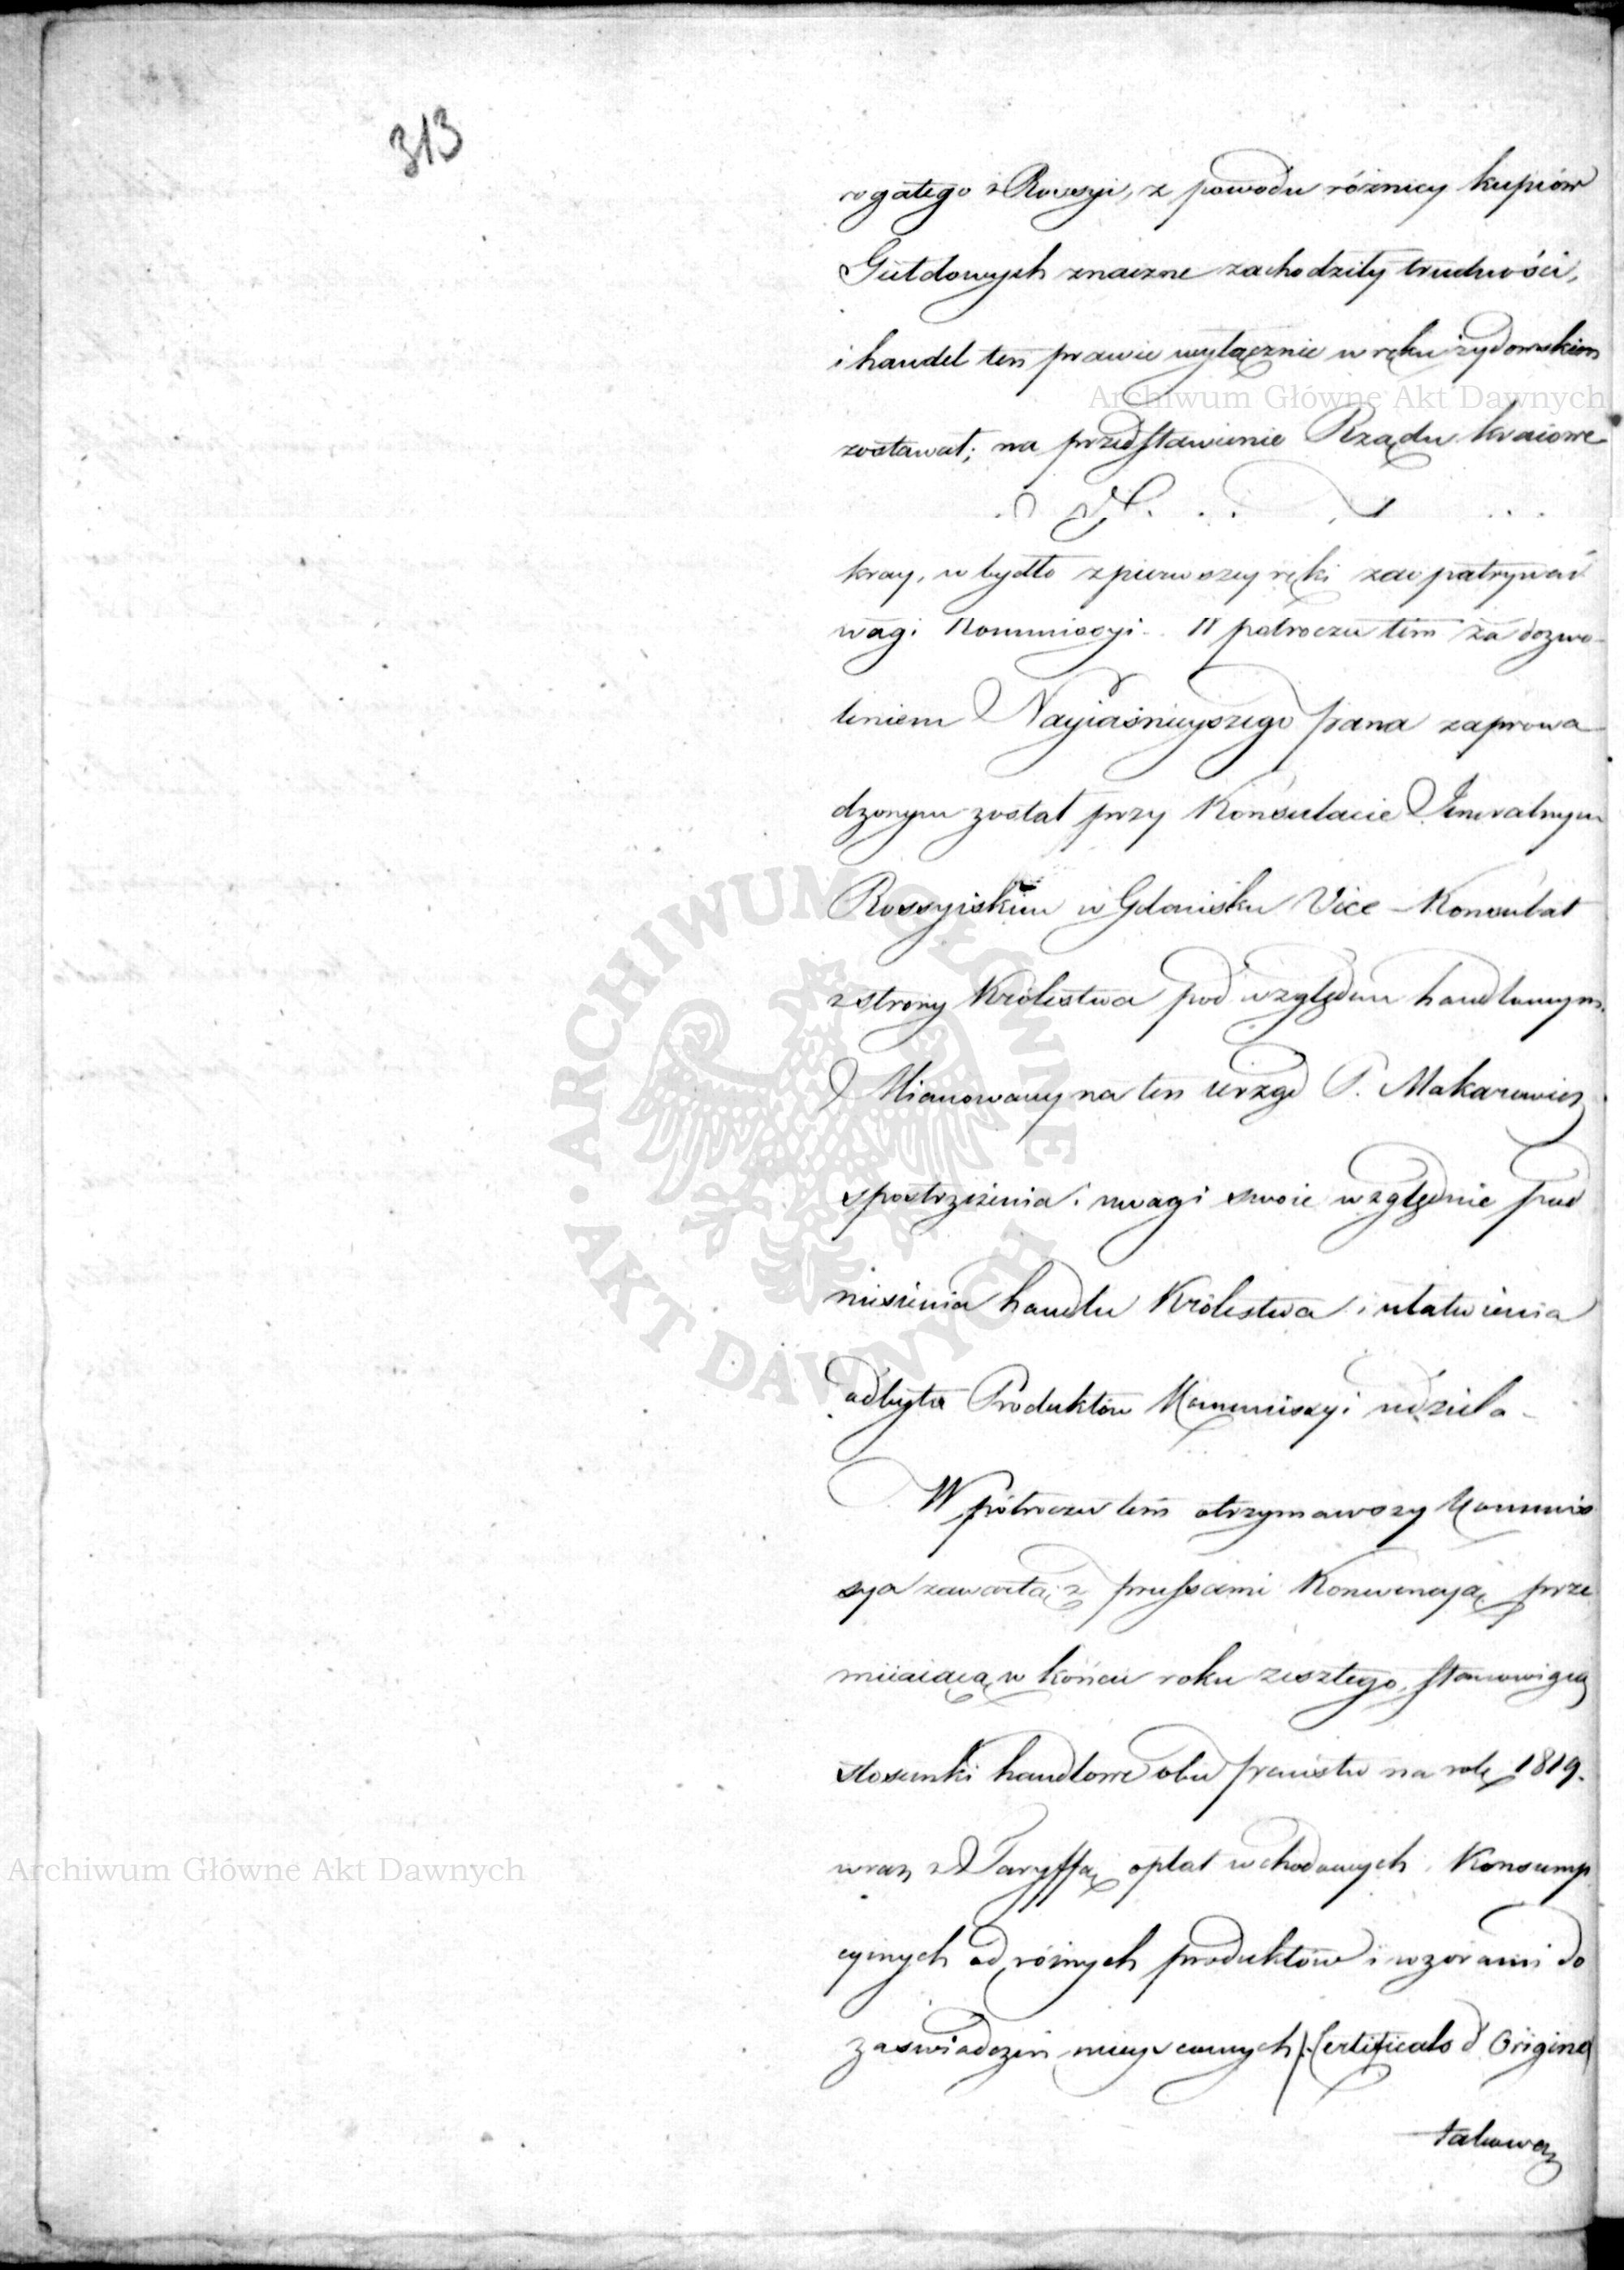 313
rogatego z Rossyi, z powodu różnicy kupiów
Gildowych znaczne zachodziły trudności,
i handel ten prawie wyłącznie w ręku żydowskim
Archiwum Główne Akt Dawnych
zostawał; na przedstawienie Rządu kraiowe
kray, w bydło z pierwszey ręki zaopatrywać
wagi Kommissyi. W półroczu tém za dozwo-
leniem Nayiaśnieyszego Pana zaprowa
dzonym został przy Konsulacie Jeneralnym
Rossyiskim w Gdańsku Vice-Konsulat
z strony Królestwa pod względem handlowym.
Mianowany na ten urząd P. Makarowicz
spostrzeżenia i uwagi swoie względnie pod
niesienia handlu Królestwa i ułatwienia
odbytu Produktów Kommissyi udziela -
W półroczu tém otrzymawszy Kommis
sya zawartą z Prussami Konwencyą prze
miiaiącą w końcu roku zeszłego, stanowiącą
stosunki handlowe obu państw na rok 1819.
wraz z Taryffą opłat wchodowych, Konsump
cyinych od różnych produktów i wzorami do
zaświadczeń mieyscowych (Certificats d'Origine)
takową
ARCHIWUM GŁÓWNE AKT DAWNYCH
Archiwum Główne Akt Dawnych